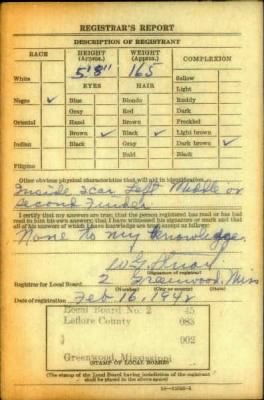 REGISTRAR'S REPORT
DESCRIPTION OF REGISTRANT
RACE HEIGHT (Approx.) WEIGHT (Approx.) COMPLEXION
5'8" 165
White Sallow
EYES HAIR Light
Negro ✓ Blue Blonde Ruddy
Gray Red Dark
Oriental Hazel Blond Freckled
Brown ✓ Black ✓ Light brown
Indian Black Gray Dark brown ✓
Bald Black
Filipino
Other obvious physical characteristics that will aid in identification
Inside Scar Left Middle or
Second Finger
I certify that my answers are true; that the person registered has read or has had
read to him his own answers; that I have witnessed his signature or mark and that
all of his answers of which I have knowledge are true, except as follows:
None to my Knowledge
(Signature of registrar)
Registrar for Local Board 2 Greenwood, Miss
(Number) (City or county) (State)
Date of registration Feb 16, 1942
Local Board No. 2 45
Leflore County 083
002
Greenwood, Mississippi
(STAMP OF LOCAL BOARD)
(The stamp of the Local Board having jurisdiction of the registrant
shall be placed in the above space.)